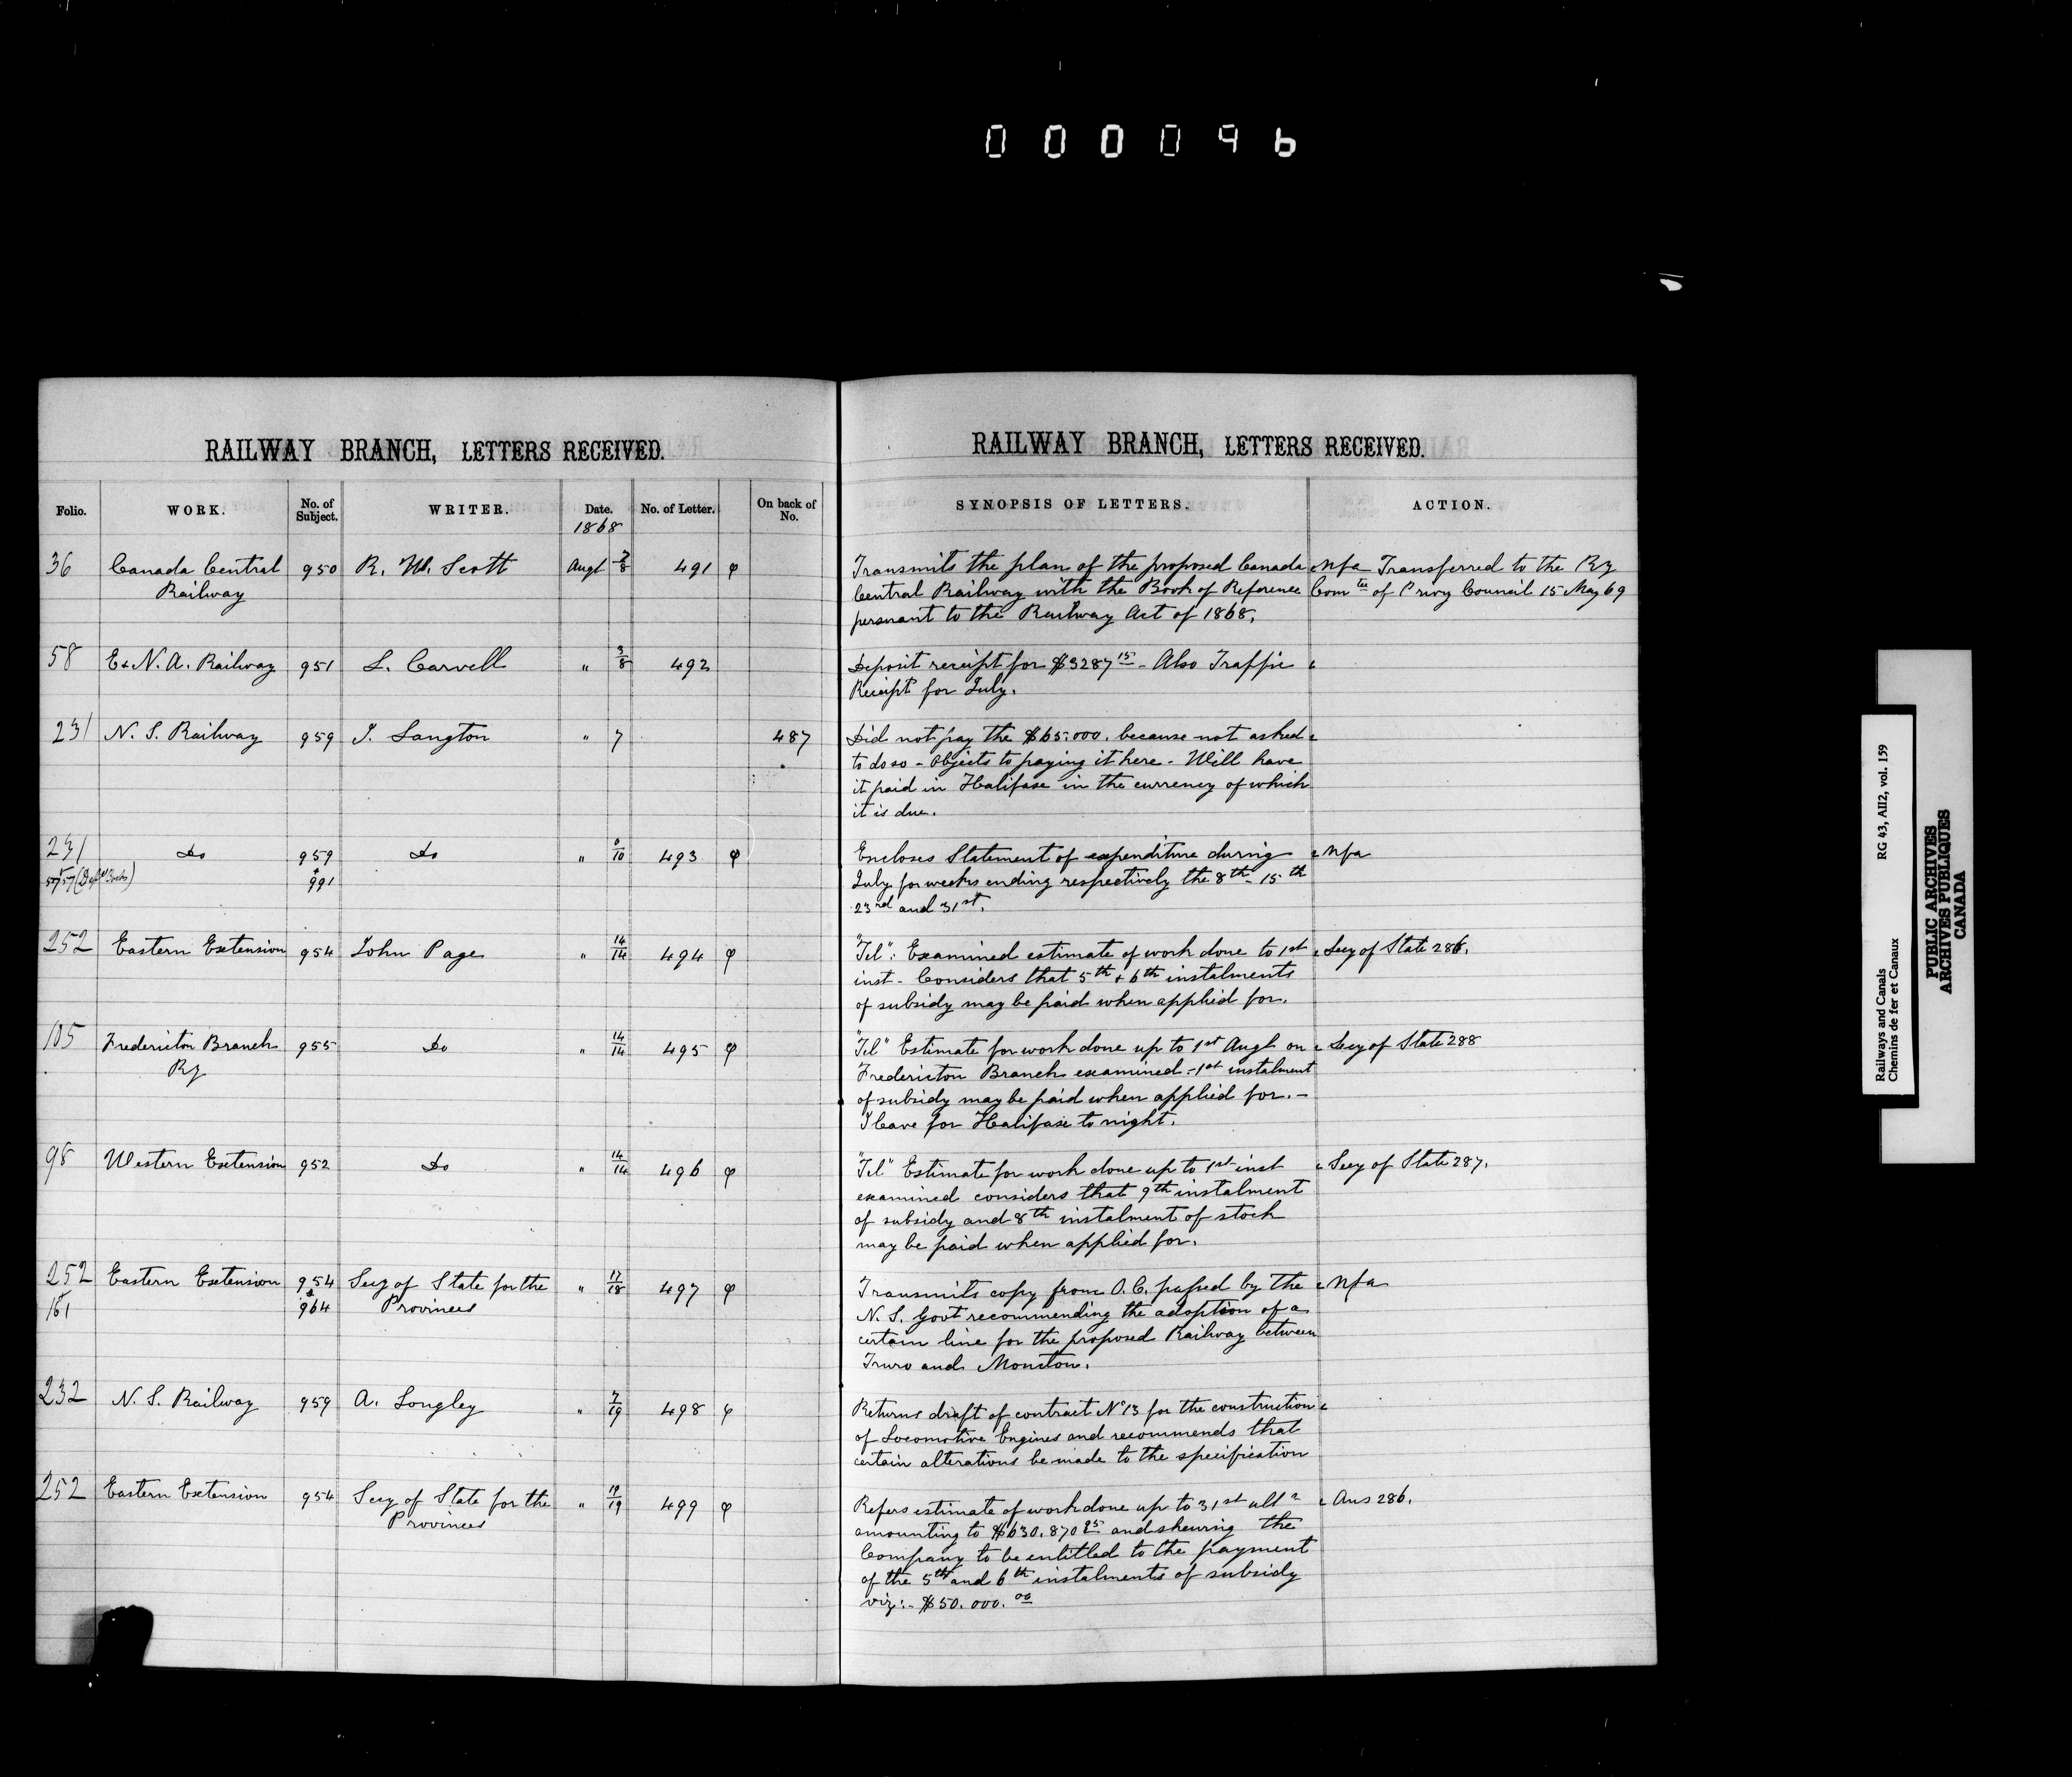 000096
RAILWAY BRANCH, LETTERS RECEIVED.
Folio. WORK. No. of Subject. WRITER. Date. 1868 No. of Letter. On back of No.
36 Canada Central 950 R. W. Scott Augt 7/8 491 φ
Railway
58 E & N. A. Railway 951 L. Carvell " 3/8 492
231 N. S. Railway 959 J. Langton " 7 487
231 Do 959 Do " 8/10 493 φ
& 991
252 Eastern Extension 954 John Page " 14/14 494 φ
105 Fredericton Branch 955 Do " 14/14 495 φ
Ry
98 Western Extension 952 Do " 14/14 496 φ
252 Eastern Extension 954 Secy of State for the " 17/18 497 φ
161 & 964 Provinces
232 N. S. Railway 959 A. Longley " 7/19 498 φ
252 Eastern Extension 954 Secy of State for the " 19/19 499 φ
Provinces
RAILWAY BRANCH, LETTERS RECEIVED.
SYNOPSIS OF LETTERS. ACTION.
Transmits the plan of the proposed Canada nfa Transferred to the Ry
Central Railway with the Book of Reference Com tee of Privy Council 15 May 69
persuant to the Railway Act of 1868.
Deposit receipt for $3287 15 - Also Traffic
Receipt for July.
Did not pay the $65.000. because not asked
to do so - Objects to paying it here - Will have
it paid in Halifax in the currency of which
it is due.
Encloses Statement of expenditure during nfa
July for weeks ending respectively the 8th - 15th
23rd and 31st.
"Tel": Examined estimate of work done to 1st Secy of State 286.
inst - Considers that 5th & 6th instalments
of subsidy may be paid when applied for.
"Tel" Estimate for work done up to 1st Augt on Secy of State 288
Fredericton Branch examined - 1st instalment
of subsidy may be paid when applied for. -
I leave for Halifax to night.
"Tel" Estimate for work done up to 1st inst Secy of State 287.
examined considers that 9th instalment
of subsidy and 8th instalment of stock
may be paid when applied for.
Transmits copy from O.C. passed by the nfa
N. S. Govt recommending the adoption of a
certain line for the proposed Railway between
Truro and Moncton.
Returns draft of contract No 13 for the construction
of Locomotive Engines and recommends that
certain alterations be made to the specification
Refers estimate of work done up to 31st ulto Ans 286.
amounting to $630.870 95 and shewing the
Company to be entitled to the payment
of the 5th and 6th instalments of subsidy
viz:- $50.000.00
Railways and Canals
Chemins de fer et Canaux
RG 43, AII2, vol. 159
PUBLIC ARCHIVES
ARCHIVES PUBLIQUES
CANADA